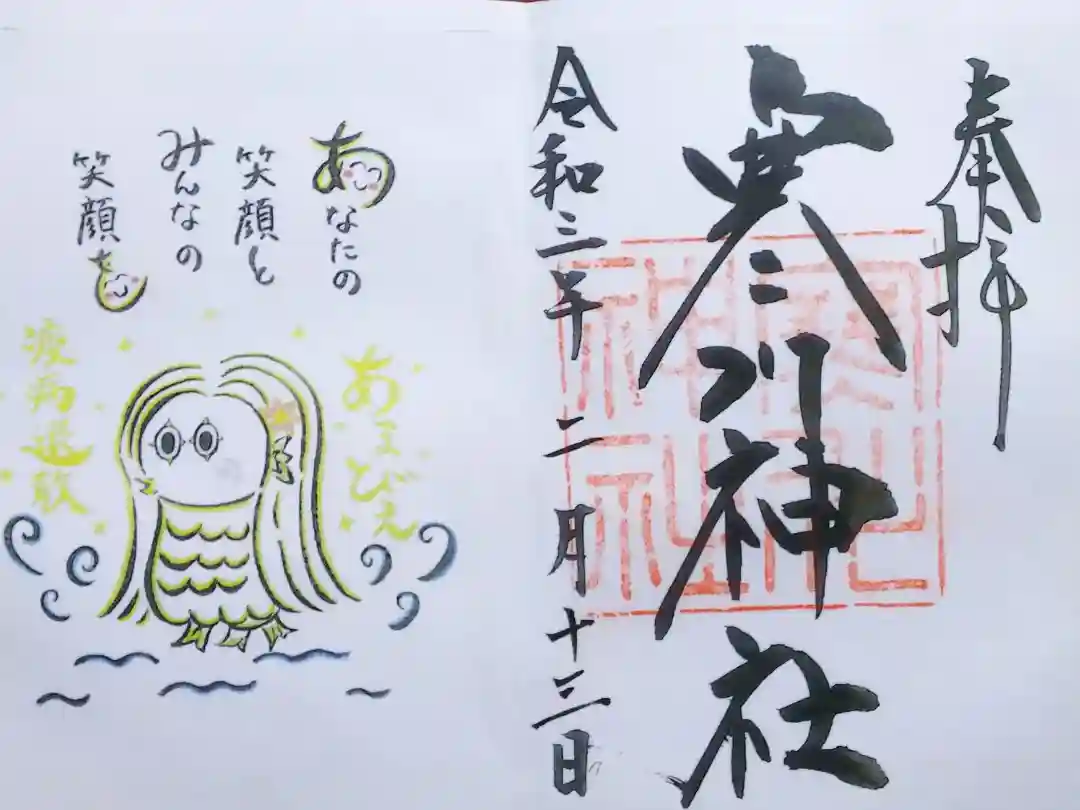 奉拝
寒川神社
令和三年二月十三日
あなたの
笑顔と
みんなの
笑顔を
あまびえ
疫病退散